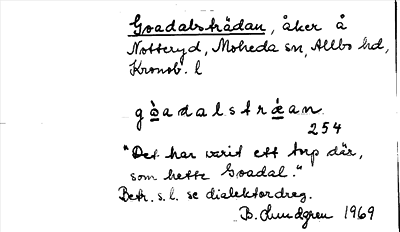 Goadalsträdan, åker å
Notteryd, Moheda sn, Allbo hd,
Kronob. l
gòadalstræ̀an
254
"Det har varit ett torp där,
som hette Goadal."
Betr. s.l. se dialektordreg.
B. Lundgren 1969